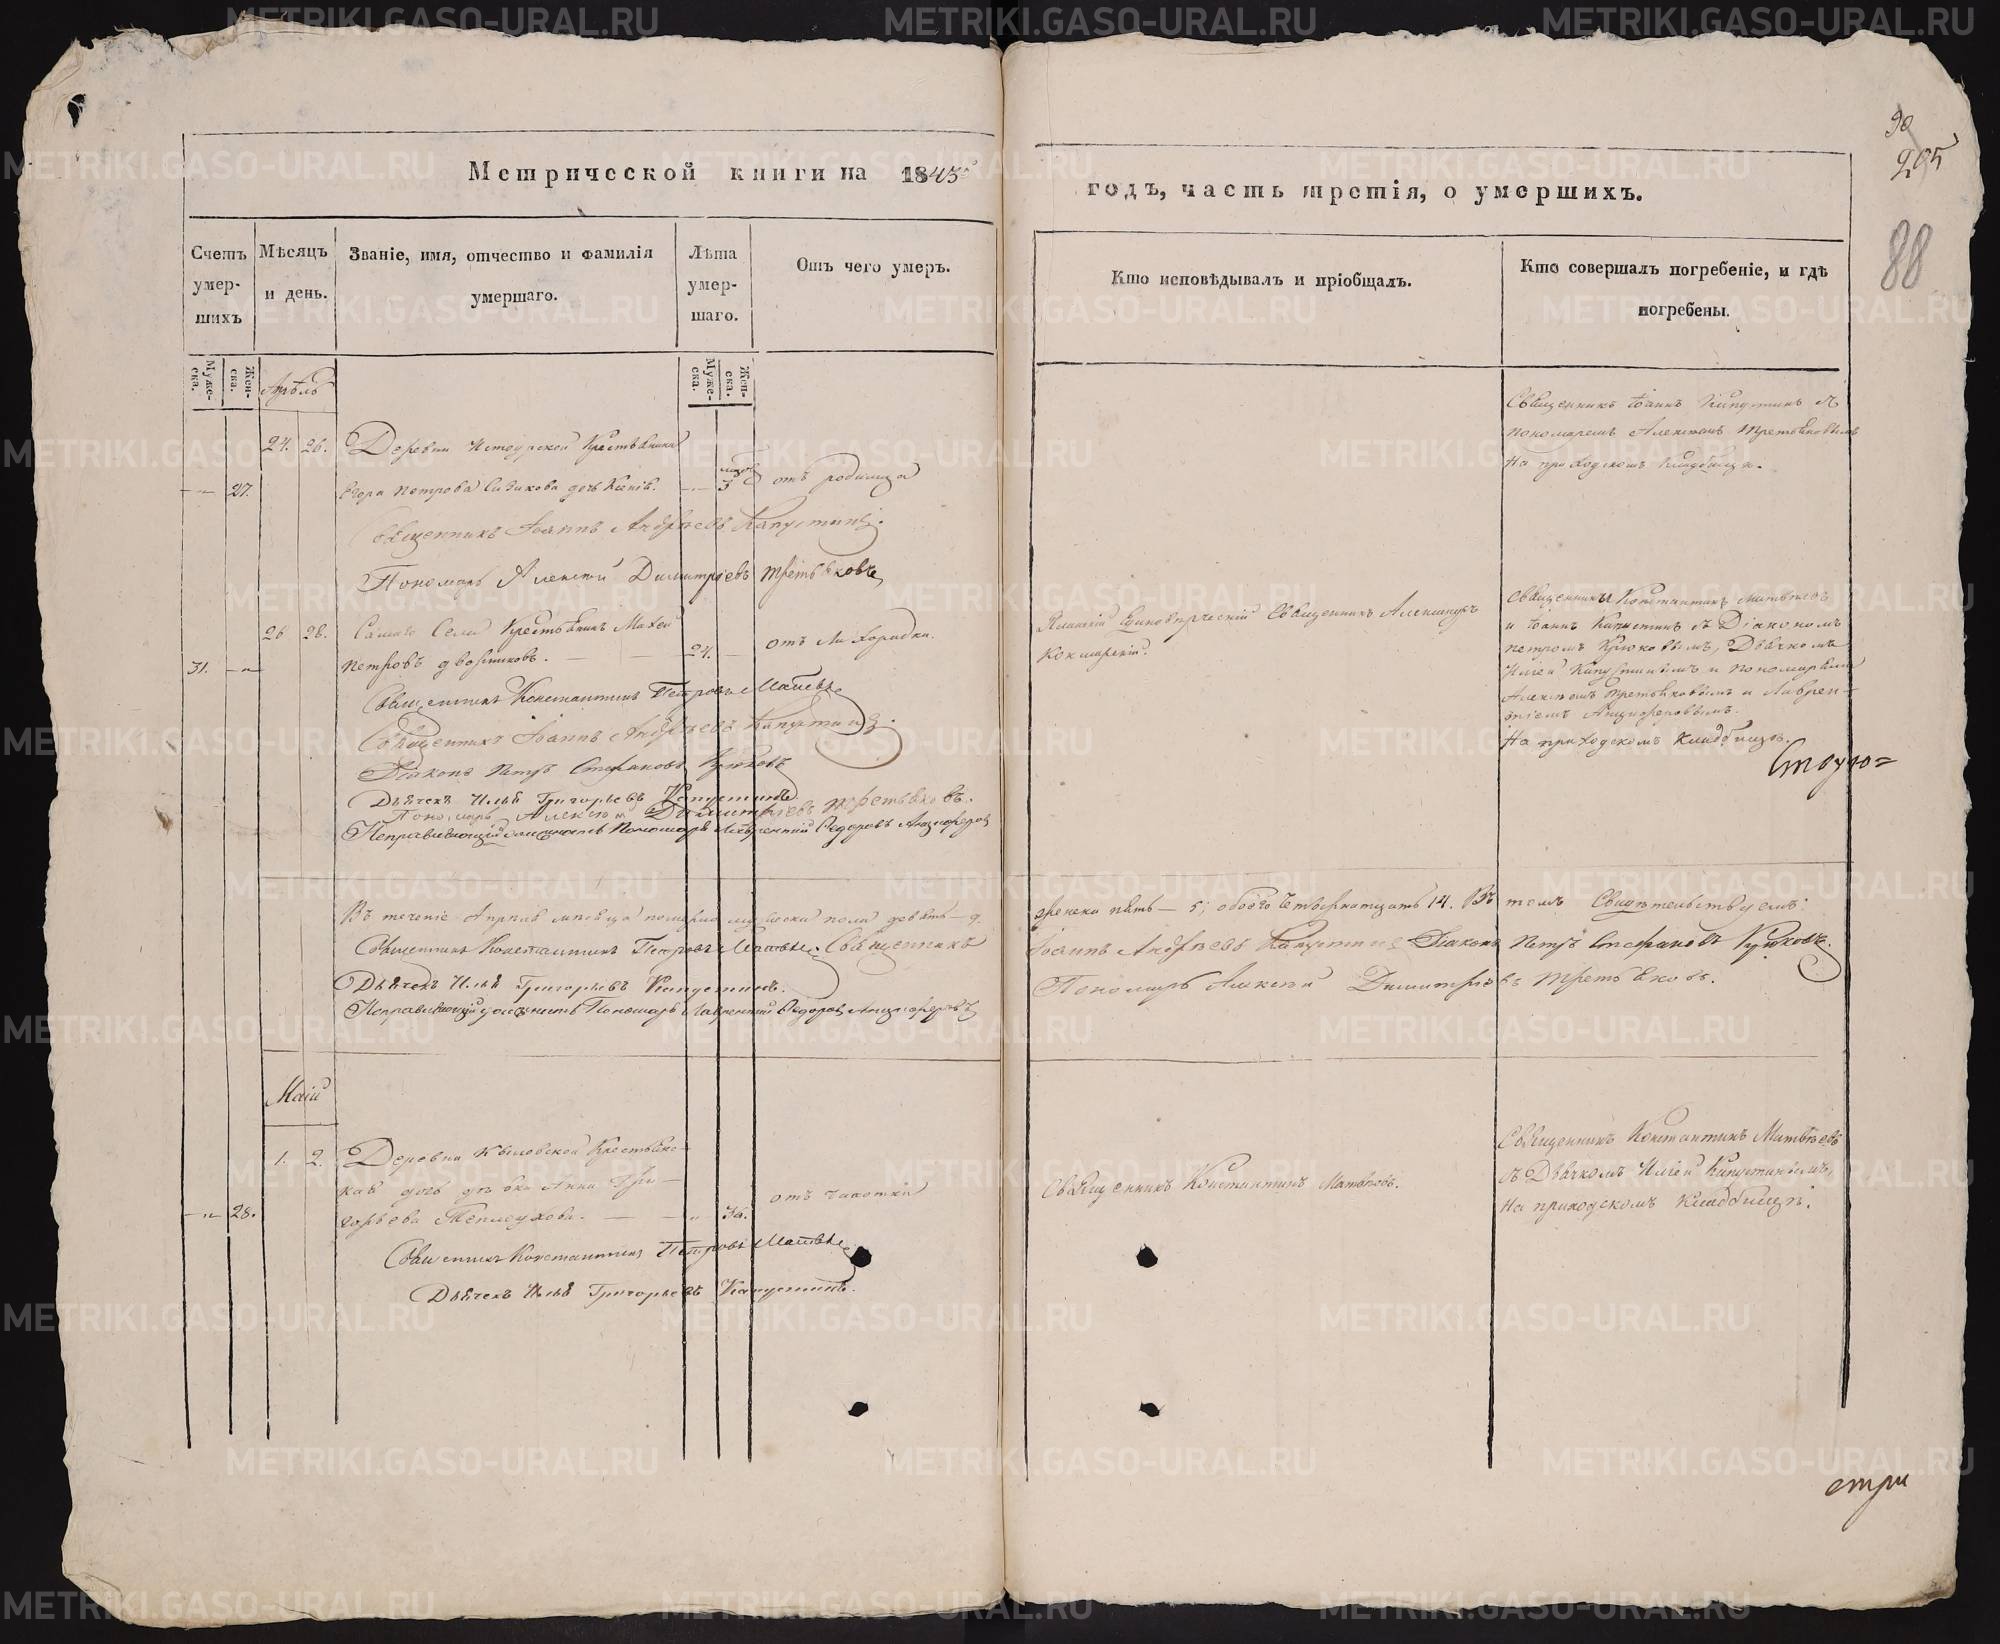 METRIKI.GASO-URAL.RU
90
205
88
Метрической книги на 1843й
годъ, часть третія, о умершихъ.
Счетъ умер-шихъ
Мѣсяцъ и день.
Званіе, имя, отчество и фамилія умершаго.
Лѣта умер-шаго.
Отъ чего умеръ.
Кто исповѣдывалъ и пріобщалъ.
Кто совершалъ погребеніе, и гдѣ погребены.
Муже-ска.
Жен-ска.
Муже-ска.
Жен-ска.
Апрѣль
24. 26. Деревни Крестьянина
27. Егора Петрова дочь 3 отъ родимца
Священникъ Іоаннъ Капустинъ съ
пономаремъ Алексіемъ Третьяковымъ
На приходскомъ кладбищѣ.
Священникъ Іоаннъ Андрѣевъ Капустинъ.
Пономарь Алексій Димитріевъ Третьяковъ
26 28. Самаго Села Крестьянинъ
31. Петровъ Дворниковъ. 24. отъ Лихорадки.
Единовѣрческій Священникъ Александръ
Священники Константинъ Матвѣевъ
и Іоаннъ Капустинъ съ Діакономъ
Петромъ Крюковымъ, Дьячкомъ
Иліей Капустинымъ и пономарями
Алексіемъ Третьяковымъ и Лаврен-
тіемъ Анциферовымъ.
На приходскомъ Кладбищѣ.
Священникъ Константинъ Петровъ Матвѣевъ
Священникъ Іоаннъ Андрѣевъ Капустинъ.
Діаконъ Петръ Стефановъ Крюковъ
Дьячекъ Илья Григорьевъ Капустинъ.
Пономарь Алексій Димитріевъ Третьяковъ.
Исправляющій должность Пономаря Лаврентій Федоровъ Анциферовъ
Въ теченіе Апрѣля мѣсяца померло мужеска пола девять — 9.
женска пять — 5; обоего четырнатцать 14. Въ томъ Свидѣтельствуемъ:
Священникъ Константинъ Петровъ Матвѣевъ. Священникъ
Іоаннъ Андрѣевъ Капустинъ Діаконъ Петръ Стефановъ Крюковъ.
Дьячекъ Илья Григорьевъ Капустинъ.
Пономарь Алексій Димитріевъ Третьяковъ.
Исправляющій должность Пономаря Лаврентій Федоровъ Анциферовъ
Маій
1. 2. Деревни Крестьянс-
кая дочь дѣвка Анна Гри-
28. горьева 36. отъ чахотки
Священникъ Константинъ Матвѣевъ.
Священникъ Константинъ Матвѣевъ
съ Дьячкомъ Иліей Капустинымъ,
На приходскомъ Кладбищѣ.
Священникъ Константинъ Петровъ Матвѣевъ
Дьячекъ Илья Григорьевъ Капустинъ.